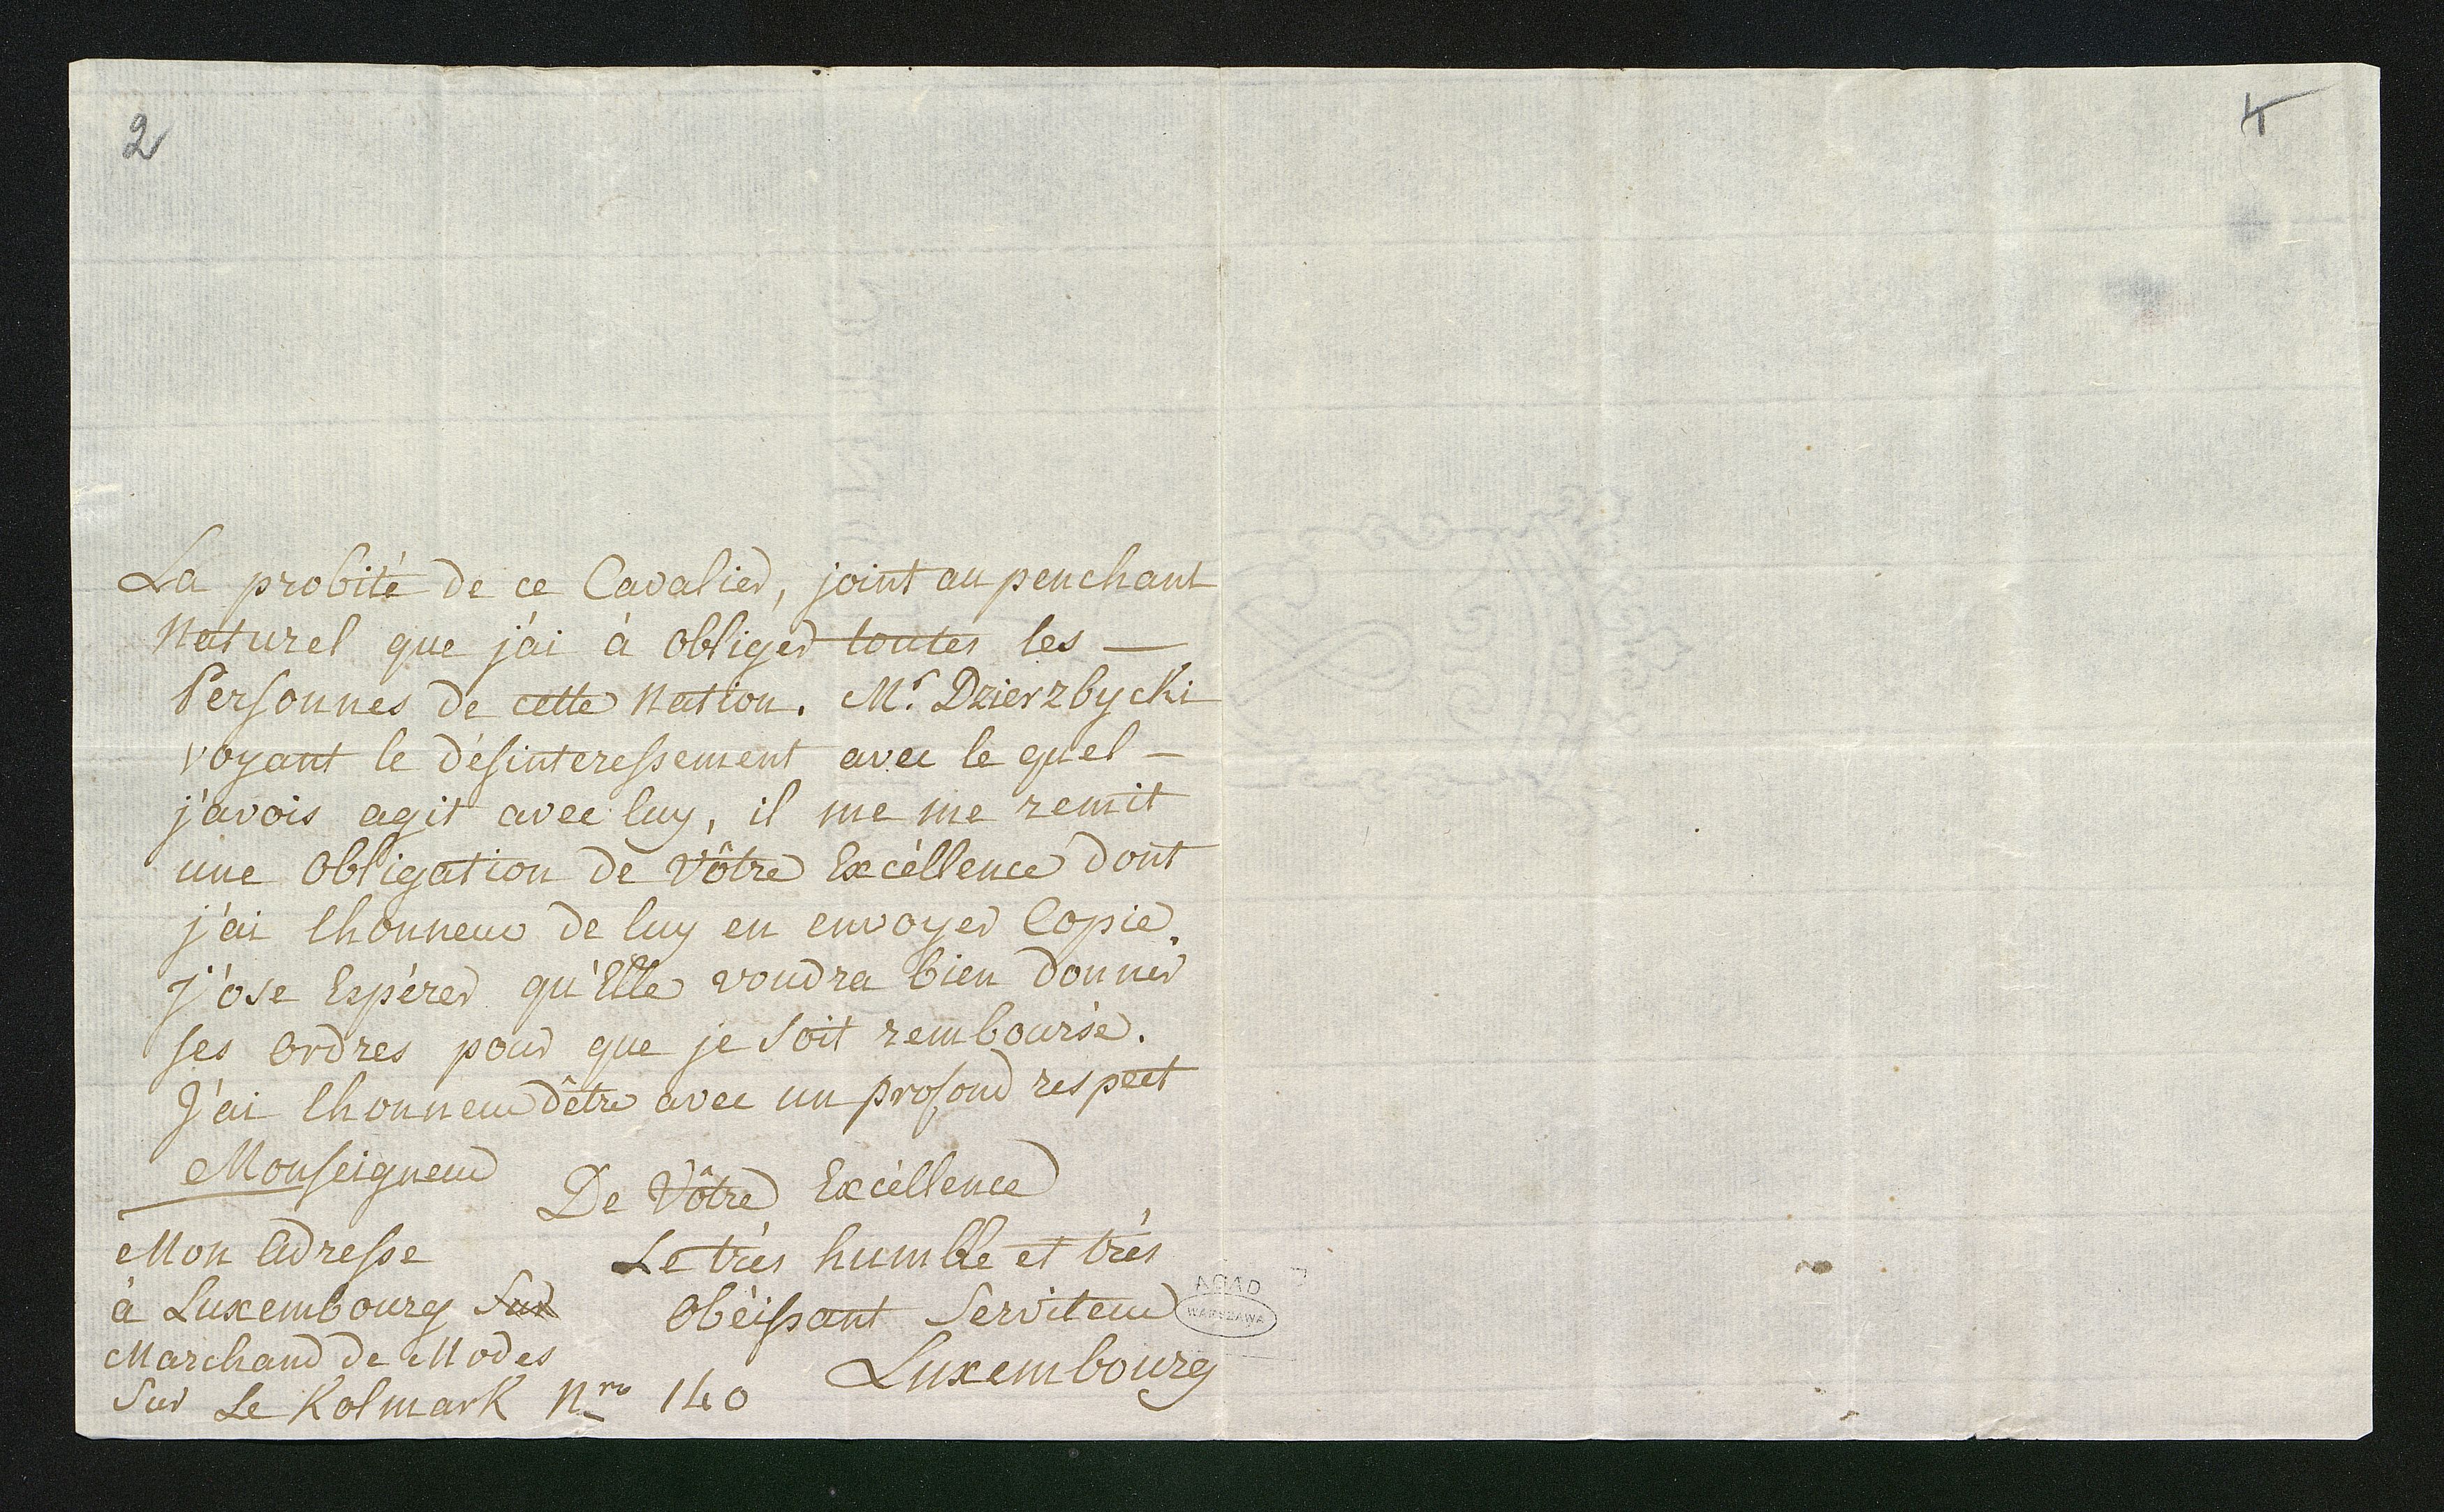 2
4
La probité de ce Cavalier, joint au penchant
Naturel que j'ai à obliger toutes les —
Personnes de cette Nation. Mr. Dzierzbycki
voyant le désinteressement avec le quel —
j'avois agit avec luy, il me me remit
une Obligation de Vôtre Excéllence dont
j'ai lhonneur de luy en envoyer Copie.
j'ose Espérer qu'Elle voudra bien donner
ses Ordres pour que je soit remboursé.
J'ai lhonneur dêtre avec un profond respect
Monseigneur
De Vôtre Excéllence
Le très humble et très
Obéissant Serviteur
Luxembourg
Mon Adresse
à Luxembourg Sur
Marchand de Modes
Sur Le Kolmark Nro 140
AGAD
WARSZAWA